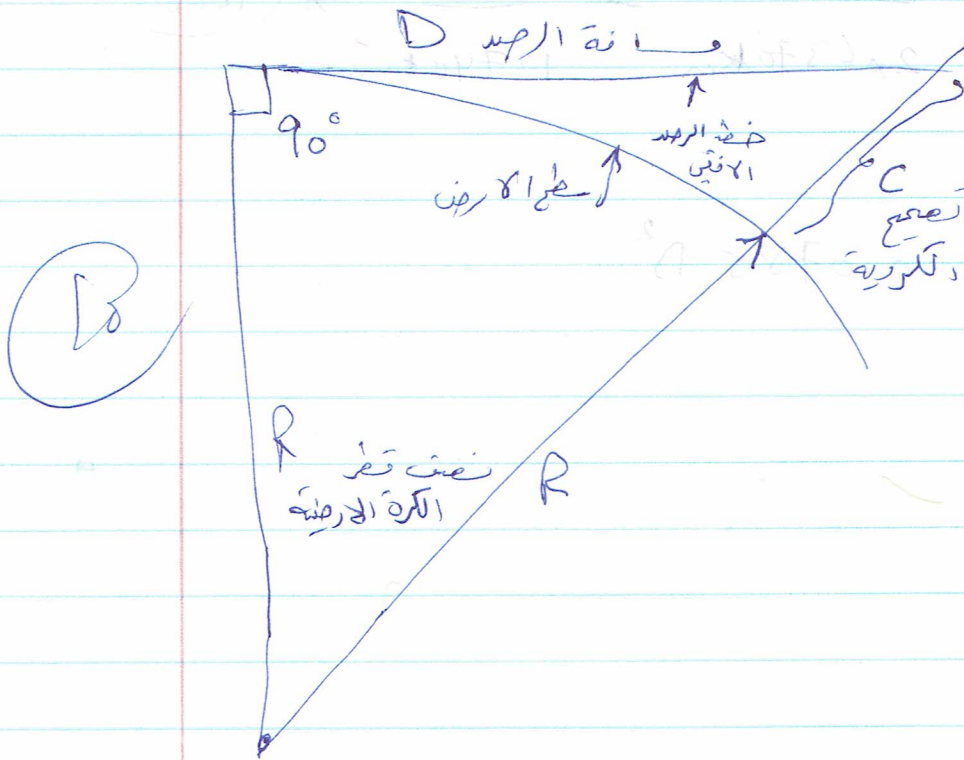 مسافة الرصد D
90°
خط الرصد
الافقي
سطح الارض
C
تصحيح
الكروية
R
نصف قطر
الكرة الارضية
R